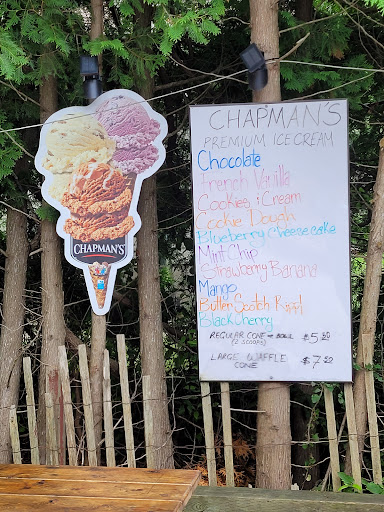 CHAPMAN'S
PREMIUM ICE CREAM
Chocolate
French Vanilla
Cookies & Cream
Cookie Dough
Blueberry Cheesecake
Mint Chip
Strawberry Banana
Mango
Butter Scotch Rippl
Black Cherry
REGULAR CONE OR BOWL $5.50
(2 SCOOPS)
LARGE WAFFLE $7.50
CONE
CHAPMAN'S